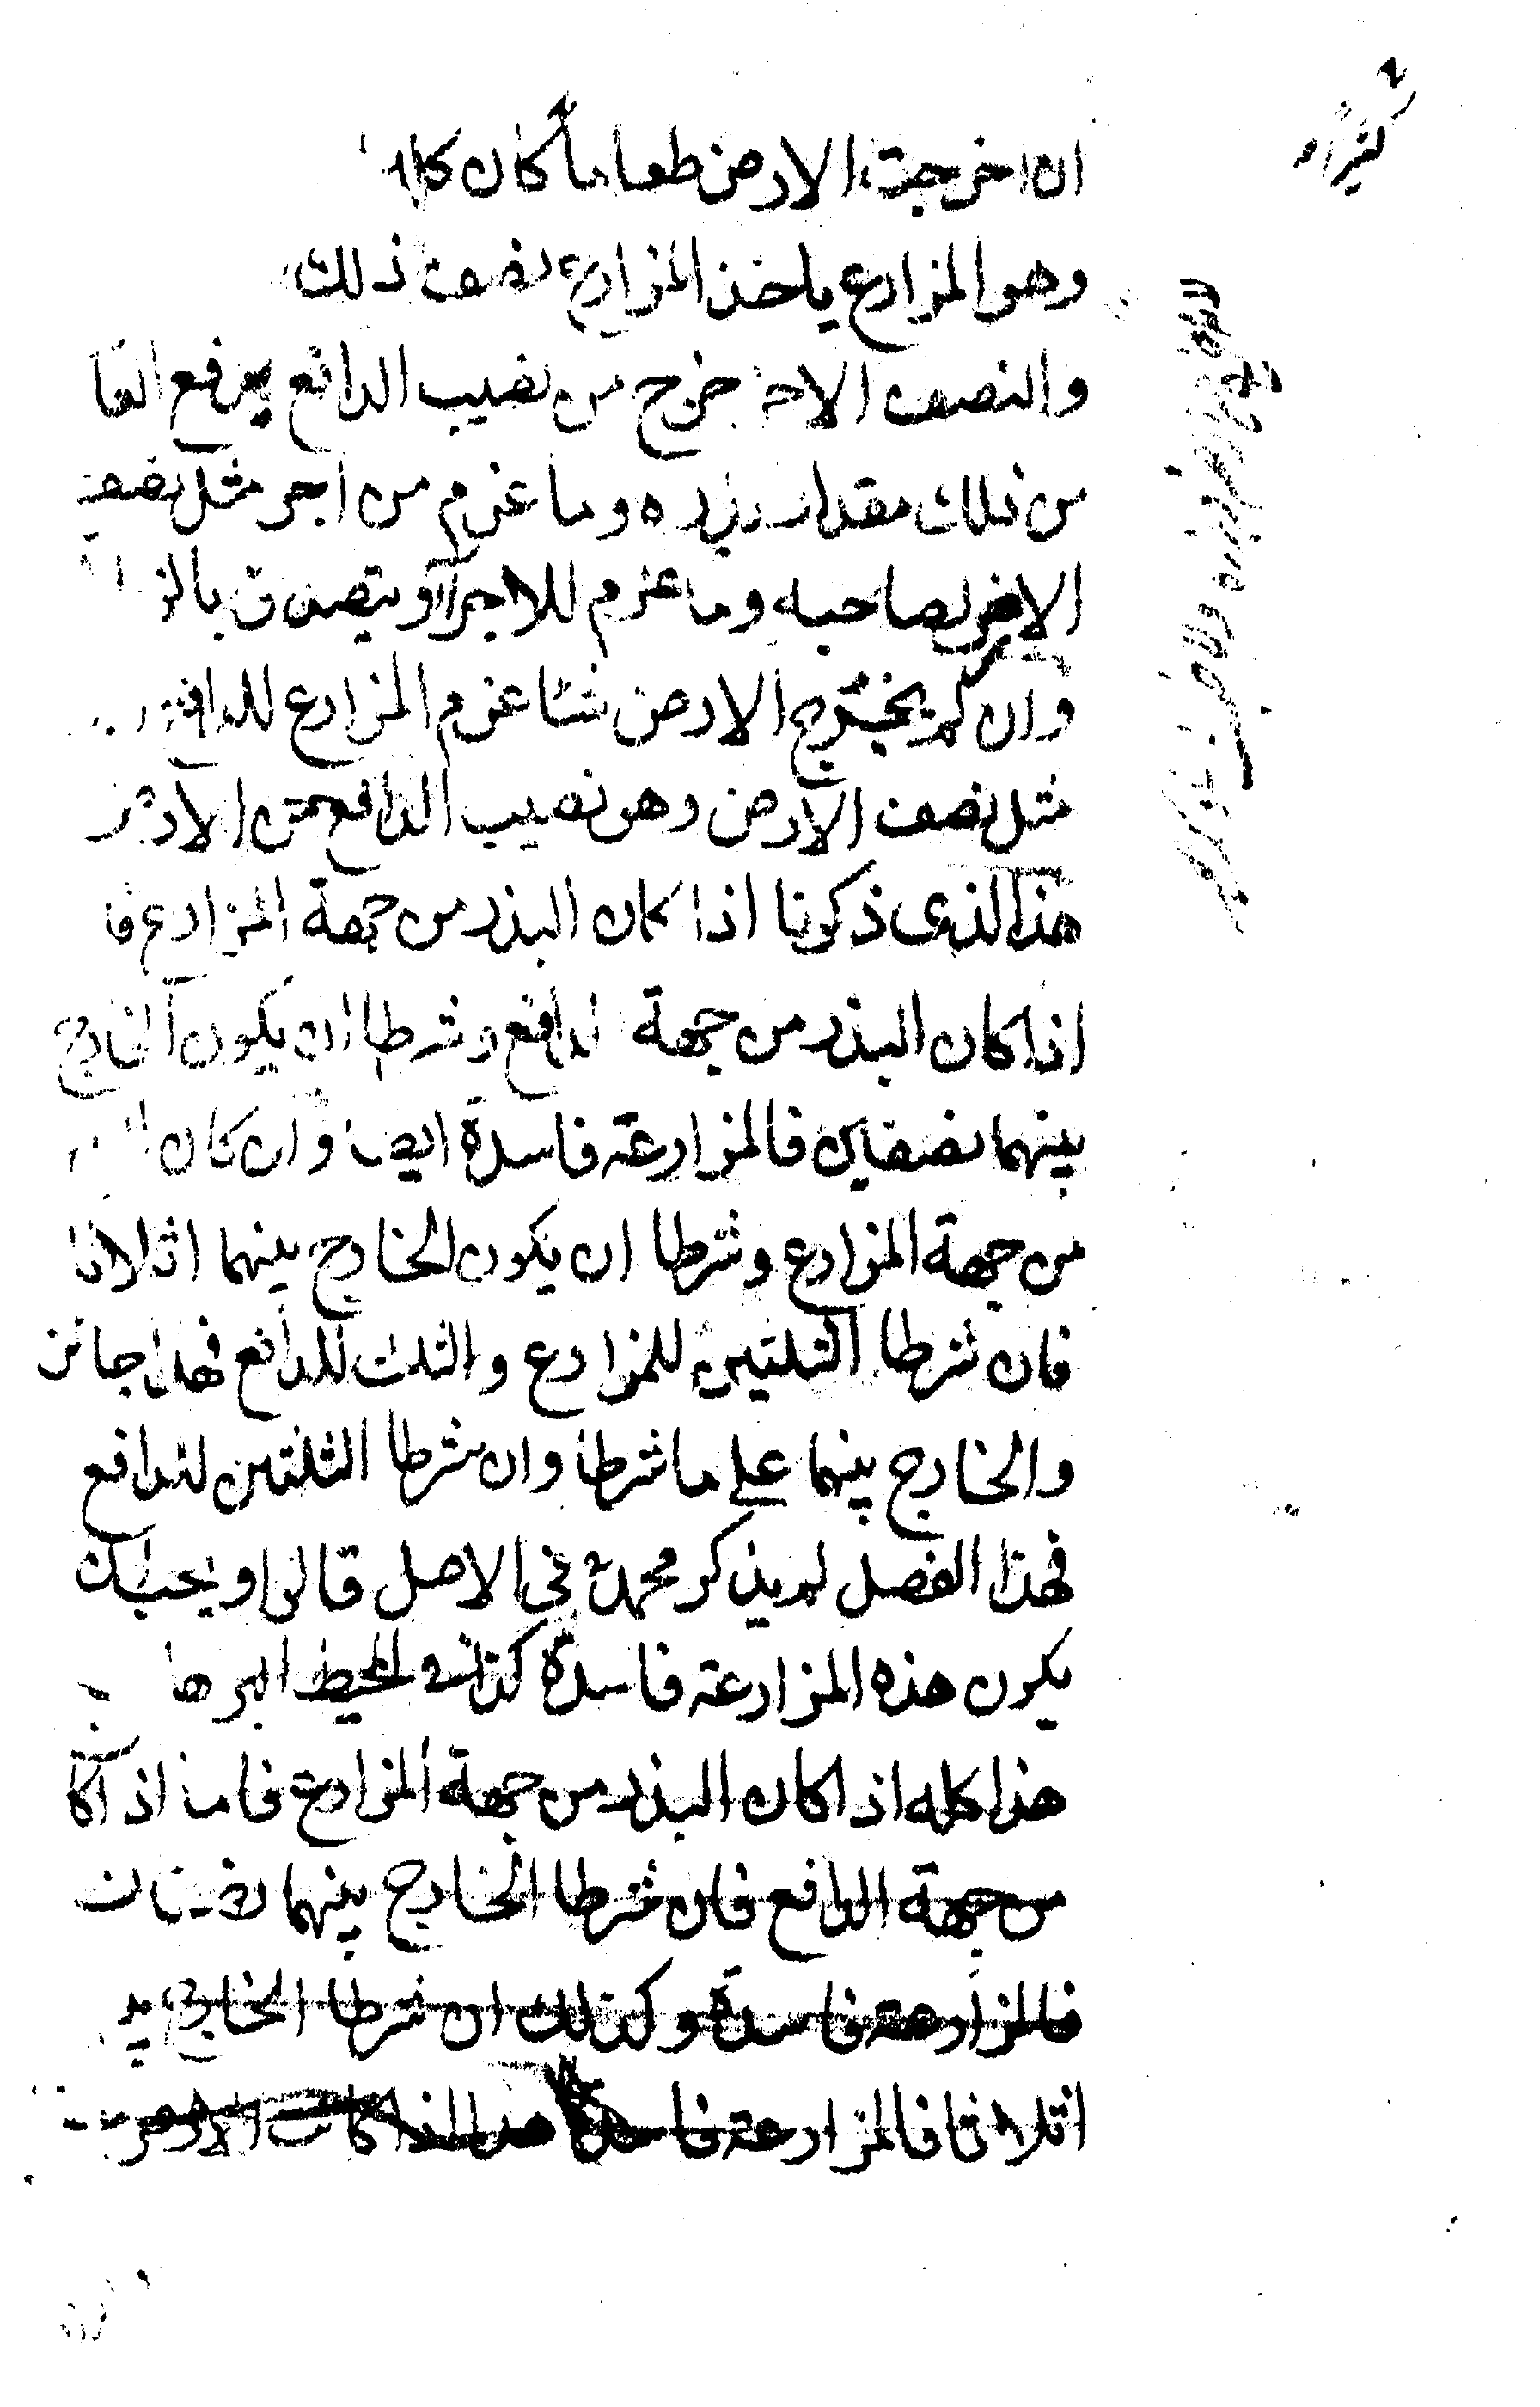 ان اخرجت الارض طعاما كان
وهو المزارع ياخذ المزارع نصف ذلك
والنصف خرج من نصيب الدافع يرفع
من ذلك مقدار بذره وما غرم من اجر مثل نصف
الارض لصاحبه وما غرم للاجراء ويتصدق
وان لم يخرج الارض شئا غرم المزارع للدافع
مثل نصف الارض وهو نصيب الدافع من الارض
هذا الذى ذكرنا اذا كان البذر من جهة المزارع فا
اذا كان البذر من جهة الدافع وشرطا ان يكون الخارج
بينهما نصفين فالمزارعة فاسدة ايضا وان كان
من جهة المزارع وشرطا ان يكون الخارج بينهما اثلاثا
فان شرطا الثلثين للمزارع والثلث للدافع فهذا جائز
والخارج بينهما على ما شرطا وان شرطا الثلثين للدافع
فهذا الفصل لم يذكر محمد فى الاصل قالوا ويجب ان
يكون هذه المزارعة فاسدة كذا فى المحيط البرها
هذا كله اذا كان البذر من جهة المزارع فاما اذا كا
من جهة الدافع فان شرطا الخارج بينهما نصفان
فالمزارعة فاسدة وكذلك ان شرطا الخارج
اثلاثا فالمزارعة فاسدة هذا اذا كانت الارض